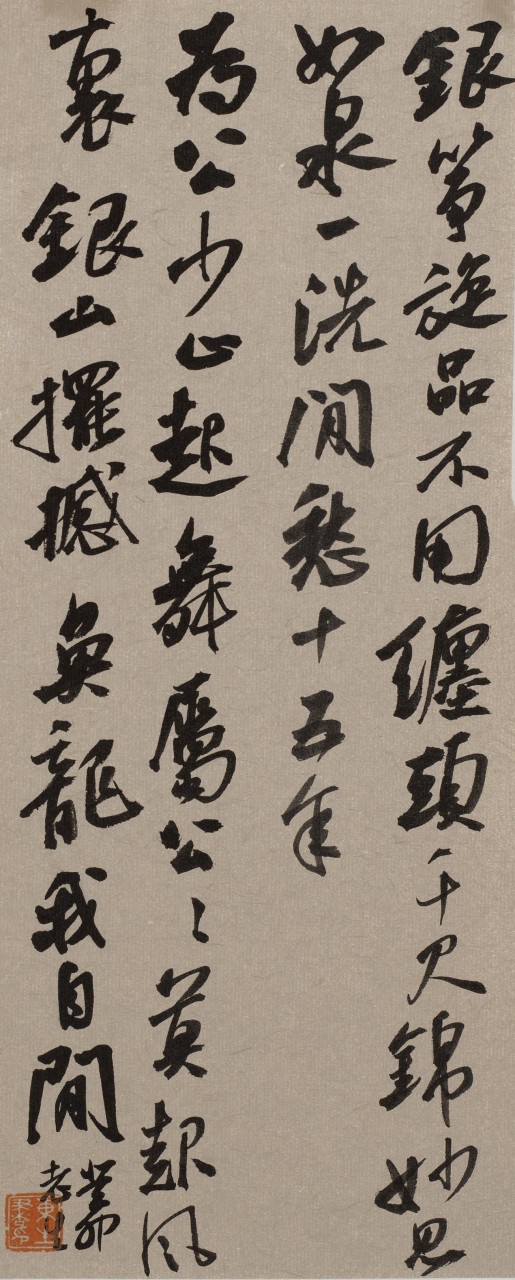 銀箏旋品不用纏頭千尺錦妙思
如泉一洗閒愁十五年
為公少止起舞屬公々莫起風
裏銀山擺撼魚龍我自閒
癸卯